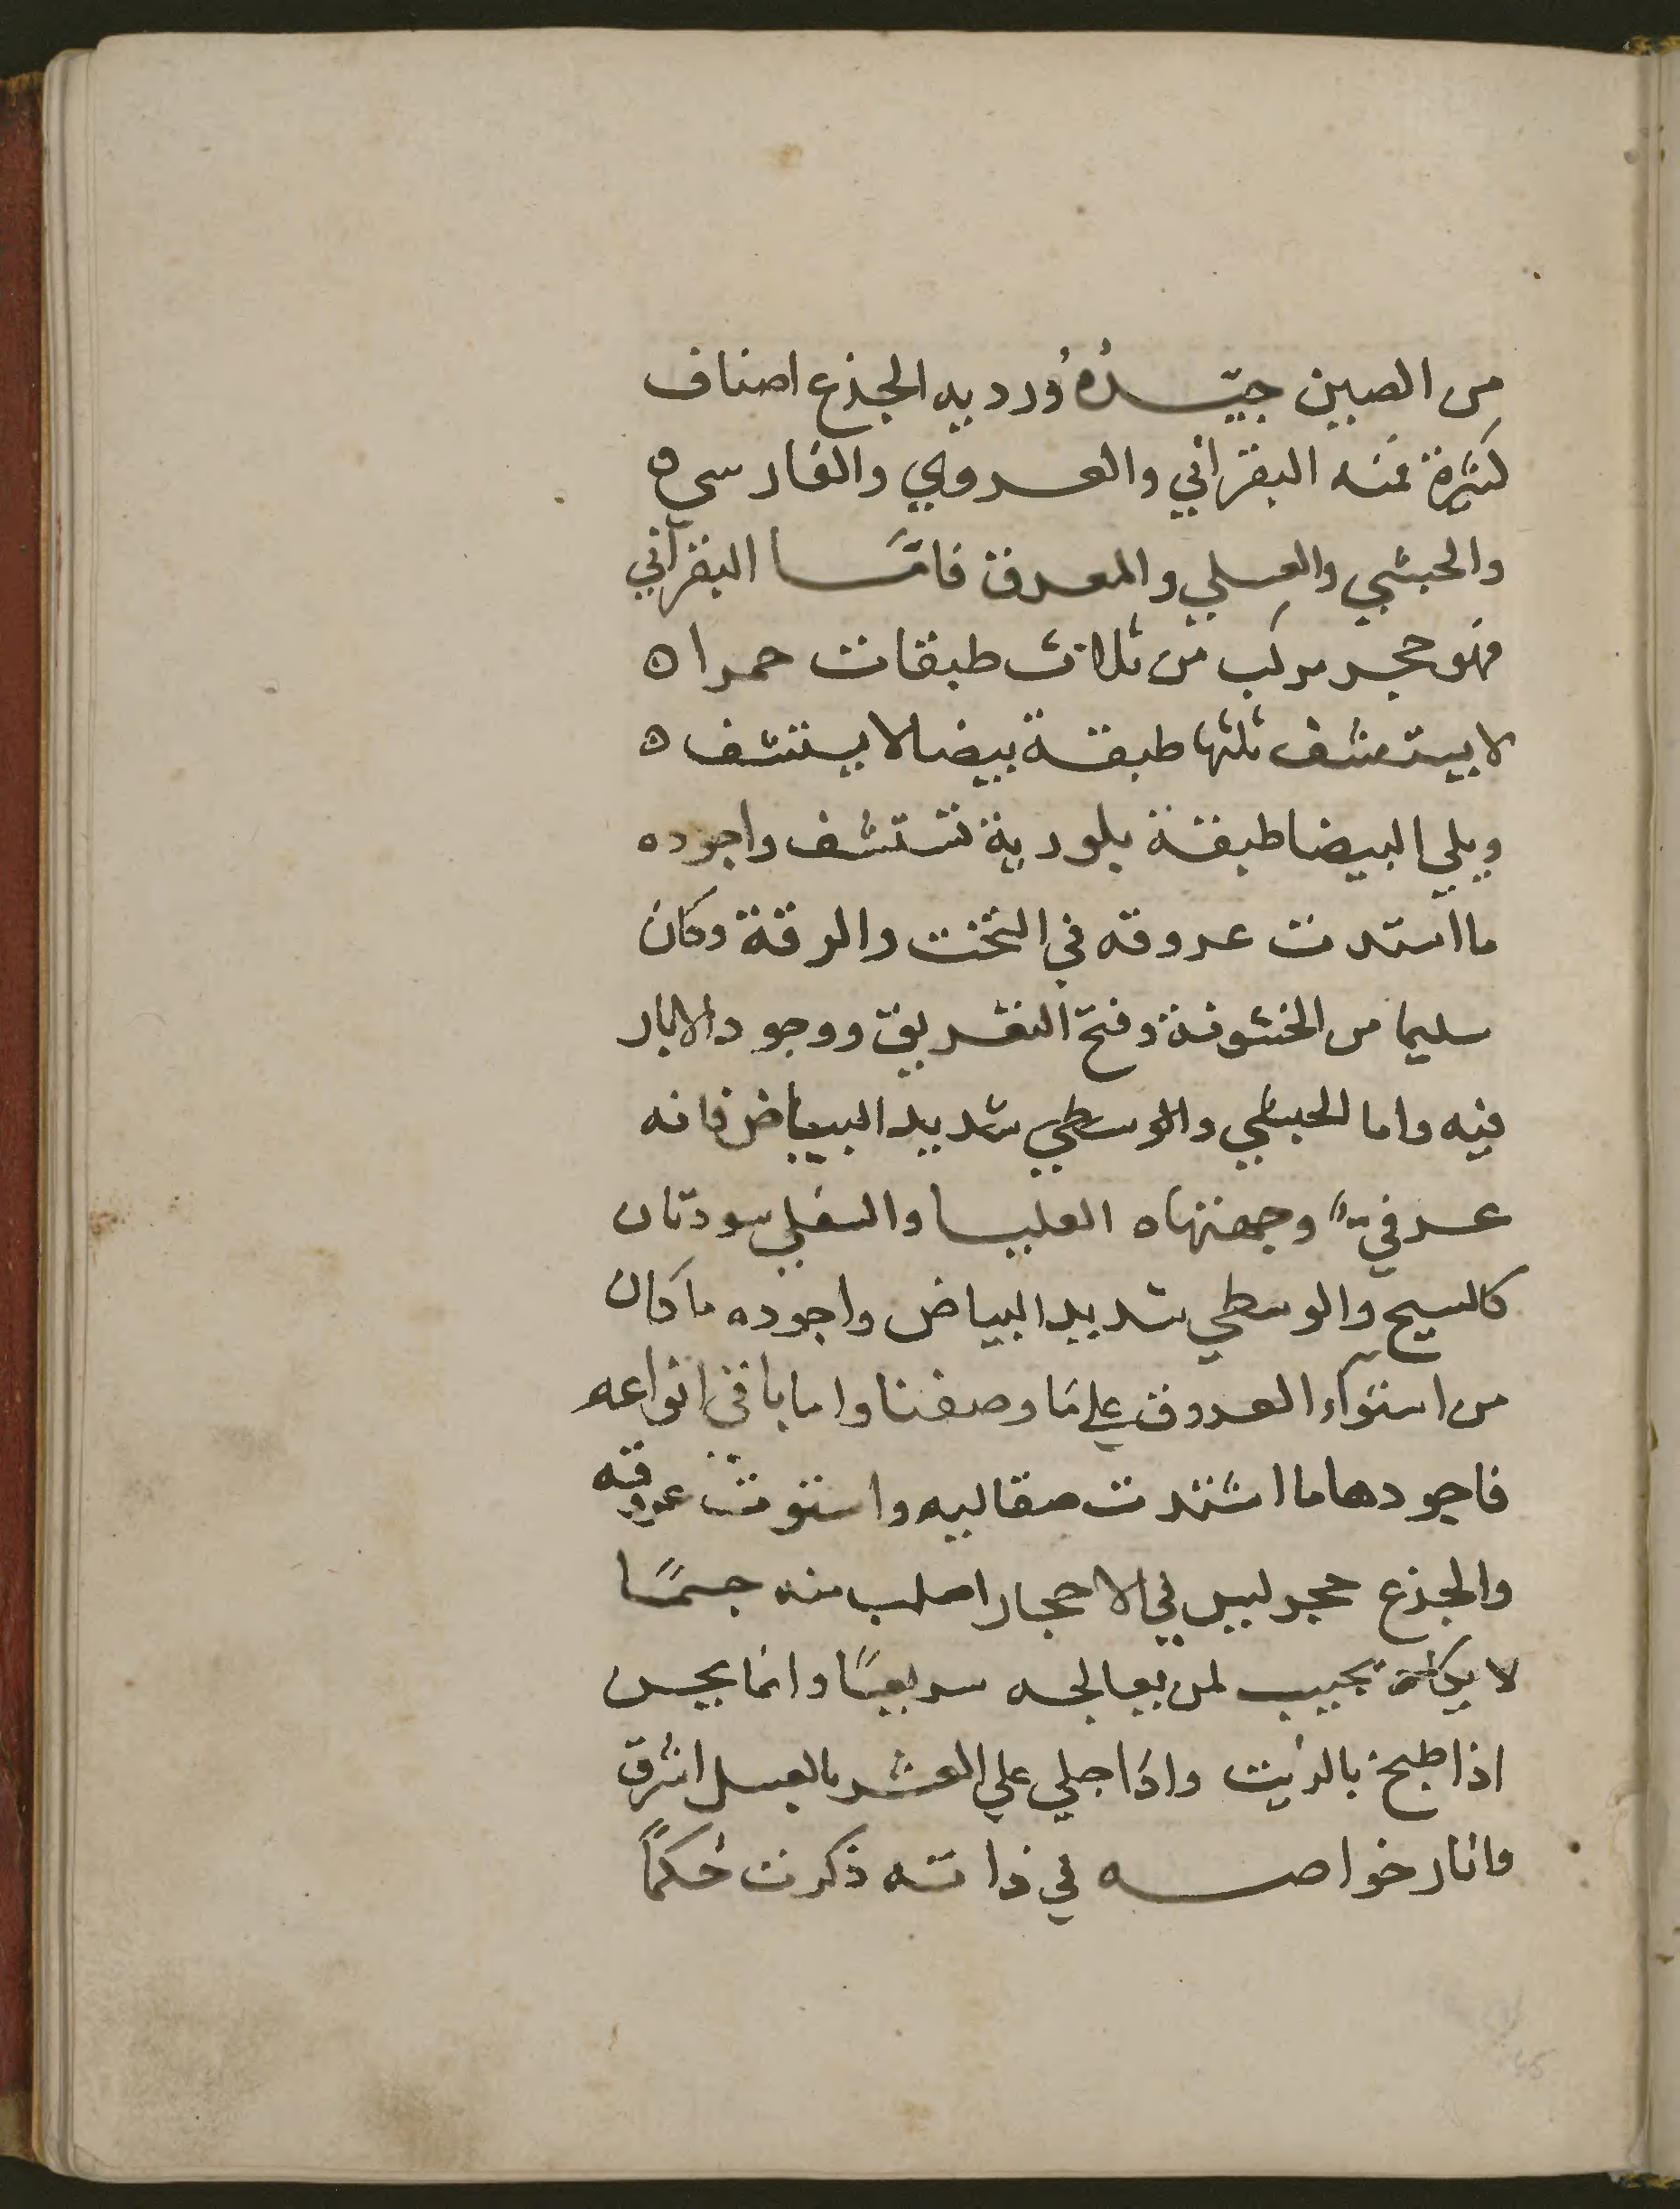 من الصين جيّدُهُ وُرديه الجذع اصناف
كثيرة فمنه البقراني والعروي والفارسي ه
والحبشي والعسلي والمعرق فامَّا البقرآني
فهو حجر مركب من ثلاث طبقات حمرا ه
لا يستشف ثلثها طبقة بيضا لا يستشف ه
ويلي البيضا طبقة بلورية تستشف واجوده
ما استدت عروقه في الثخت والرقة وكان
سليما من الخشونة وفتح التفريق ووجود الاثار
فيه واما الحبشي والوسطي شديد البياض فانه
عرفي وجهتهاه العليا والسفلي سودتان
كالسبح والوسطي شديد البياض واجوده ما كان
من استوآء العروق علي ما وصفنا واما باقي انواعه
فاجودها ما اشتدت صقاليه واستوت عروقه
والجذع حجر ليس في الاحجار اصلب منه جسمًا
لا يكاد يجيب لمن يعالجه سريعًا وانما يحسن
اذا طبخ بالزيت واذا جلي علي العشر بالعسل اشرق
وانار خواصه في ذاته ذكرت حُكماً